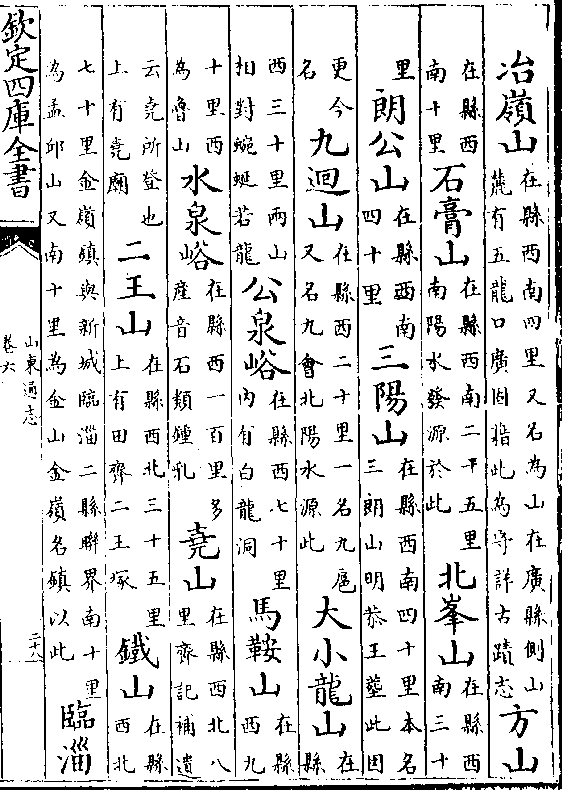 冶嶺山在縣西南四里又名為山在廣縣側山麓有五龍口廣固指此為守詳古蹟志方山
在縣西南十里石膏山在縣西南二十五里南陽水發源於此北峯山在縣西南三十
里朗公山在縣西南四十里三陽山在縣西南四十里本名三朗山明恭王塟此因
更今名九迴山在縣西二十里一名九扈又名九會北陽水源此大小龍山在縣
西三十里兩山相對蜿蜒若龍公泉峪在縣西七十里内有白龍洞馬鞍山在縣西九
十里西為魯山水泉峪在縣西一百里多産音石類鍾乳堯山在縣西北八里齊記補遺
云堯所登也上有堯廟二王山在縣西北三十五里上有田齊二王冢鐵山在縣西北
七十里金嶺鎮與新城臨淄二縣聯界南十里為孟邱山又南十里為金山金嶺名鎮以此臨淄
欽定四庫全書
山東通志
卷六
二十八